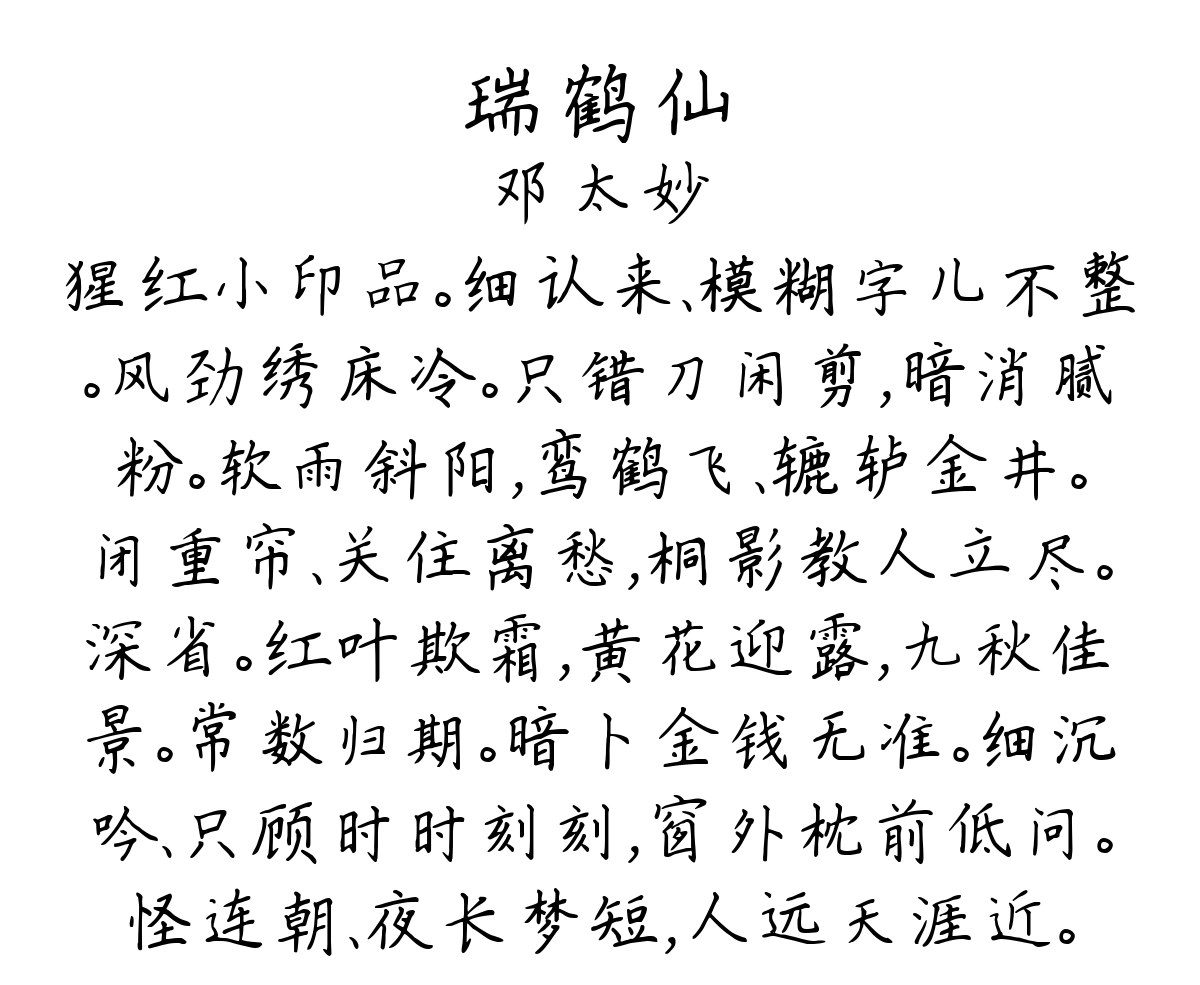 瑞鹤仙
邓太妙
猩红小印品。细认来、模糊字儿不整
。风劲绣床冷。只错刀闲剪,暗消腻
粉。软雨斜阳,鸾鹤飞、辘轳金井。
闭重帘、关住离愁,桐影教人立尽。
深省。红叶欺霜,黄花迎露,九秋佳
景。常数归期。暗卜金钱无准。细沉
吟、只顾时时刻刻,窗外枕前低问。
怪连朝、夜长梦短,人远天涯近。